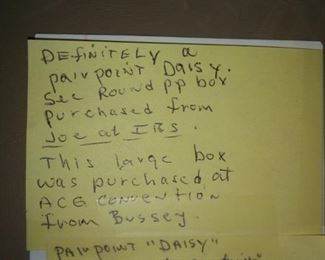 DEFINITELY a
pairpoint Daisy.
See Round pp box
purchased from
Joe at IBS.
This large box
was purchased at
ACG CONVENTION
from Bussey.
PAIRPOINT "DAISY"